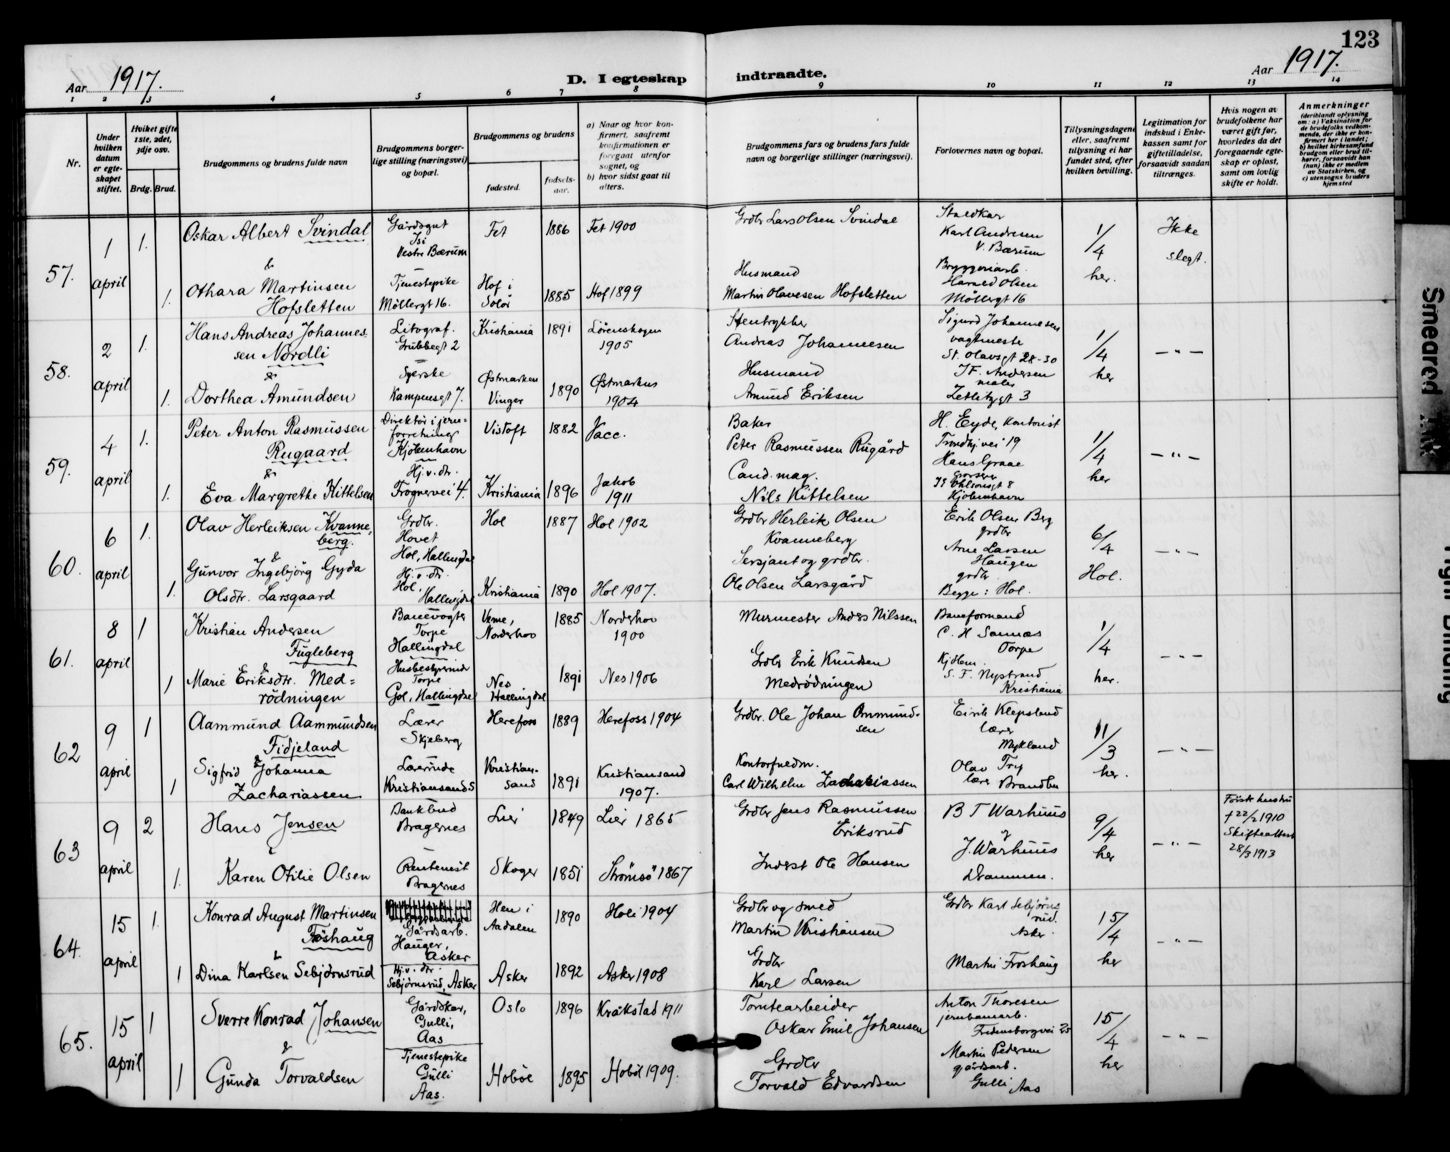 123
Aar 1917. D. I egteskap indtraadte. Aar 1917.
1 2 3 4 5 6 7 8 9 10 11 12 13 14
Nr.
Under hvilken datum er egteskapet stiftet.
Hvilket gifte 1ste, 2det, 3dje osv.
Brdg. Brud.
Brudgommens og brudens fulde navn
Brudgommens borgerlige stilling (næringsvei) og bopæl.
Brudgommens og brudens
fødested.
fødselsaar.
a) Naar og hvor konfirmert, saafremt konfirmationen er foregaat utenfor sognet, og
b) hvor sidst gaat til alters.
Brudgommens fars og brudens fars fulde navn og borgerlige stillinger (næringsvei).
Forlovernes navn og bopæl.
Tillysningsdagene eller, saafremt tillysning ei har fundet sted, efter hvilken bevilling.
Legitimation for indskud i Enkekassen samt for giftetilladelse, forsaavidt saadan tiltrænges.
Hvis nogen av brudefolkene har været gift før, hvorledes da det foregaaende egteskap er opløst, samt om lovlig skifte er holdt.
Anmerkninger
57. 1 april 1. Oskar Albert Svindal Gårdsgut Vestre Bærum Fet 1886 Fet 1900 Grdbr Lars Olsen Svindal Staldkar Karl Andersen V. Bærum 1/4 her. Ikke slegt.
& 1. Othara Martinsen Hofsletten Tjenestepike Møllergt 16. Hof i Solør 1885 Hof 1899 Husmand Martin Olavesen Hofsletten Bryggeriarb. Harald Olsen Møllergt 16
58. 2 april 1. Hans Andreas Johannessen Nordli Litograf. Grubbegt 2 Kristiania 1891 Lørenskogen 1905 Stentrykker Andreas Johannesen Sigurd Johannesen vagtmester St. Olavsgt 28-30 1/4 her — " —
& 1. Dorthea Amundsen Syerske Kampensgt 7. Østmarken Vinger 1890 Østmarkus 1904 Husmand Amund Eriksen J F. Andersen maler
59. 4 april 1. Peter Anton Rasmussen Rugaard Direktør i jernforretning Kjøbenhavn Vistoft 1882 Vacc. Baker Peter Rasmussen Rugård H. Eyde, Kontorist Trondhj.vei 19 1/4 her — " —
& 1. Eva Margrethe Kittelsen Hj. v. dr. Frognervei 4. Kristiania 1896 Jakob 1911 Cand. mag. Nils Kittelsen Hans Graae Kjøbenhavn
60. 6 april 1. Olav Herleiksen Kvanneberg. Grdbr. Hovet Hol, Hallingdal Hol 1887 Hol 1902 Grdbr Herleik Olsen Kvanneberg Erik Olsen Berg grdbr 6/4 Hol. — " —
& 1. Gunvor Ingebjørg Gyda Olsdtr. Larsgaard Hj. v. dr. Hol, Hallingdal Kristiania 1890 Hol 1907. Sersjant og grdbr. Ole Olsen Larsgård Arne Larsen Haugen grdbr Begge: Hol.
61. 8 april 1 Kristian Andersen Fugleberg Banevogter Torpe Hallingdal Veme, Norderhov 1885 Norderhov 1900 Murmester Anders Nilssen Baneformand C. H Sannæs Torpe 1/4 her. — " —
& 1 Marie Eriksdtr. Medrødningen Husbestyrerinde Torpe Gol, Hallingdal Nes Hallingdal 1891 Nes 1906 Grdbr Erik Knudsen Medrødningen S. F. Nystrand Kristiania
62 9 april 1 Aammund Aammundsen Fidjeland Lærer Skjeberg Herefoss 1889 Herefoss 1904 Grdbr. Ole Johan Ommundsen Eivik Klepslend lærer Mykland 11/3 her. — " —
& 1 Sigfrid Johanna Zachariassen Lærerinde Kristiansand S Kristiansand 1891 Kristiansand 1907. Kontorfuldm. Carl Wilhelm Zachariassen Olav Try lærer
63 9 april 2 Hans Jensen Bankbud Bragernes Lier 1849 Lier 1865 Grdbr Jens Rasmussen Eriksrud B T Warhuus 9/4 her — " — Første hustru † 22/2 1910 Skifteattest 28/3 1913
& 1. Karen Otilie Olsen Rentenist Bragernes Skoger 1851 Strømsø 1867 Inderst Ole Hansen & J. Warhuus Drammen.
64. 15 april 1. Konrad August Martinsen Frøshaug Gårdsarb. Hauger, Asker Hen i Aadalen 1890 Hole 1904 Grdbr og smed Martin Kristiansen Grdbr Karl Sebjørnsrud. Asker. 15/4 her — " —
& 1 Dina Karlsen Sebjørnsrud Hj. v. dr. Sebjørnsrud, Asker Asker 1892 Asker 1908 Grdbr Karl Larsen Martin Frøshaug
65. 15 april 1 Sverre Konrad Johansen Gårdskar, Gulli, Aas Oslo 1896 Kråkstad 1911 Tomtearbeider Oskar Emil Johansen Anton Thoresen jernbanearb. Fredensborgvei 25 15/4 her — " —
& 1 Gunda Torvaldsen Tjenestepike Gulli Aas. Hobøl 1895 Hobøl 1909. Grdbr Torvald Edvardsen Martin Pedersen gårdsarb. Gulli Aas
Smeared
Tight Binding